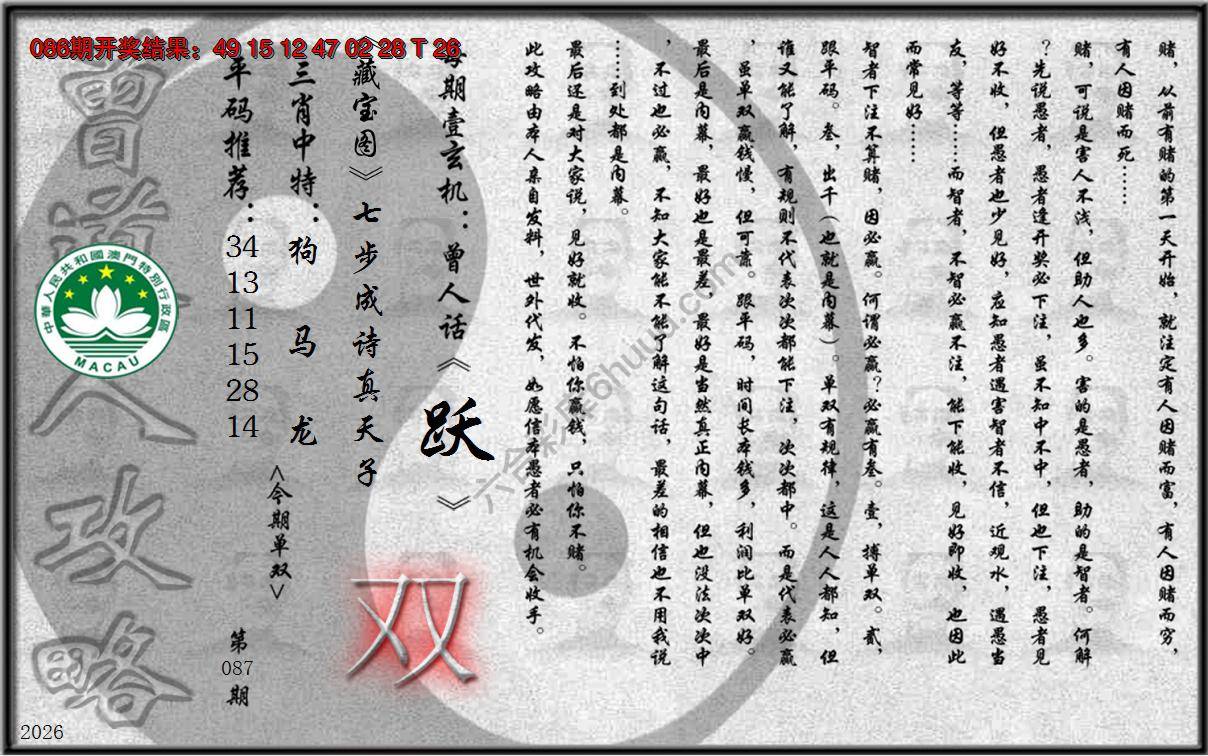 086期开奖结果：49 15 12 47 02 28 T 26
赌，从前有赌的第一天开始，就注定有人因赌而富，有人因赌而穷，
有人因赌而死……
赌，可说是害人不浅，但助人也多。害的是愚者，助的是智者。何解
？先说愚者，愚者逢开奖必下注，虽不知中不中，但也下注，愚者见
好不收，但愚者也少见好，应知愚者遇害智者不信，近观水，遇愚当
友，等等……而智者，不智必赢不注，能下能收，见好即收，也因此
而常见好……
智者下注不算赌，因必赢。何谓必赢？必赢有叁。壹，搏单双。贰，
跟平码。叁，出千（也就是内幕）。单双有规律，这是人人都知，但
谁又能了解，有规则不代表次次都能下注，次次都中。而是代表必赢
，虽单双赢钱慢，但可靠。跟平码，时间长本钱多，利润比单双好。
最后是内幕，最好也是最差，最好是当然真正内幕，但也没法次次中
，不过也必赢，不知大家能不能了解这句话，最差的相信也不用我说
……到处都是内幕。
最后还是对大家说，见好就收。不怕你赢钱，只怕你不赌。
此攻略由本人亲自发料，世外代发，如愿信本愚者必有机会收手。
每期壹玄机：曾人话《跃》
《藏宝图》七步成诗真天子
双
三肖中特：狗 马 龙
<今期单双>
平码推荐：34 13 11 15 28 14
第087期
曾道人攻略
中華人民共和國澳門特別行政區
MACAU
2026